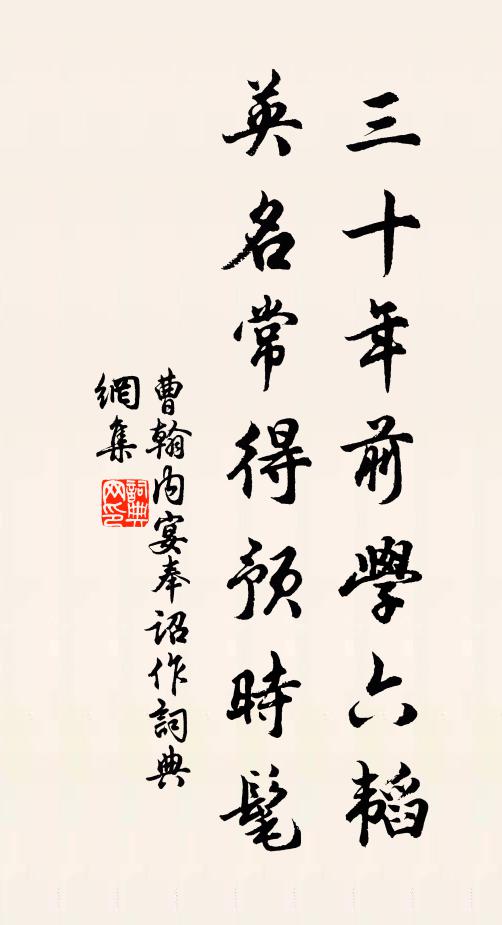 三十年前學六韜
英名常得預時髦
曹翰内宴奉詔作詞典
網集
詞典網印